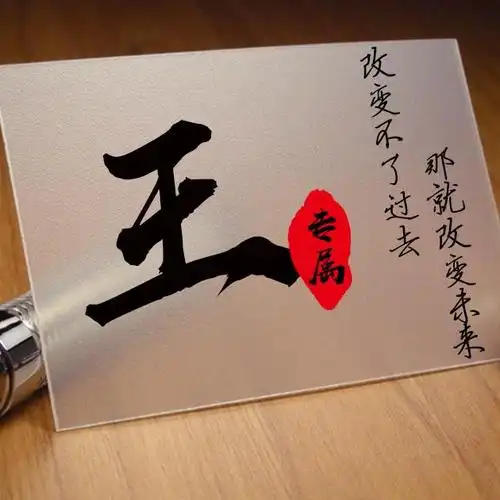 王
专属
改变不了过去
那就改变未来